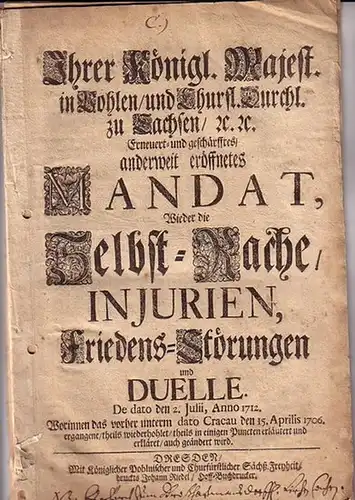 C.)
Ihrer Königl. Majest.
in Pohlen/und Churfl. Durchl.
zu Sachsen/ ꝛc. ꝛc.
Erneuert- und geschärfftes/
anderweit eröffnetes
MANDAT,
Wieder die
Selbst-Rache/
INJURIEN,
Friedens-Störungen
und
DUELLE.
De dato den 2. Julii, Anno 1712.
Worinnen das vorher unterm dato Cracau den 15. Aprilis 1706.
ergangene/theils wiederhohlet/ theils in einigen Puncten erläutert und
erkläret/ auch geändert wird.
DRESDEN/
Mit Königlicher Pohlnischer und Churfürstlicher Sächß. Freyheit/
druckts Johann Riedel/ Hoff-Buchdrucker.